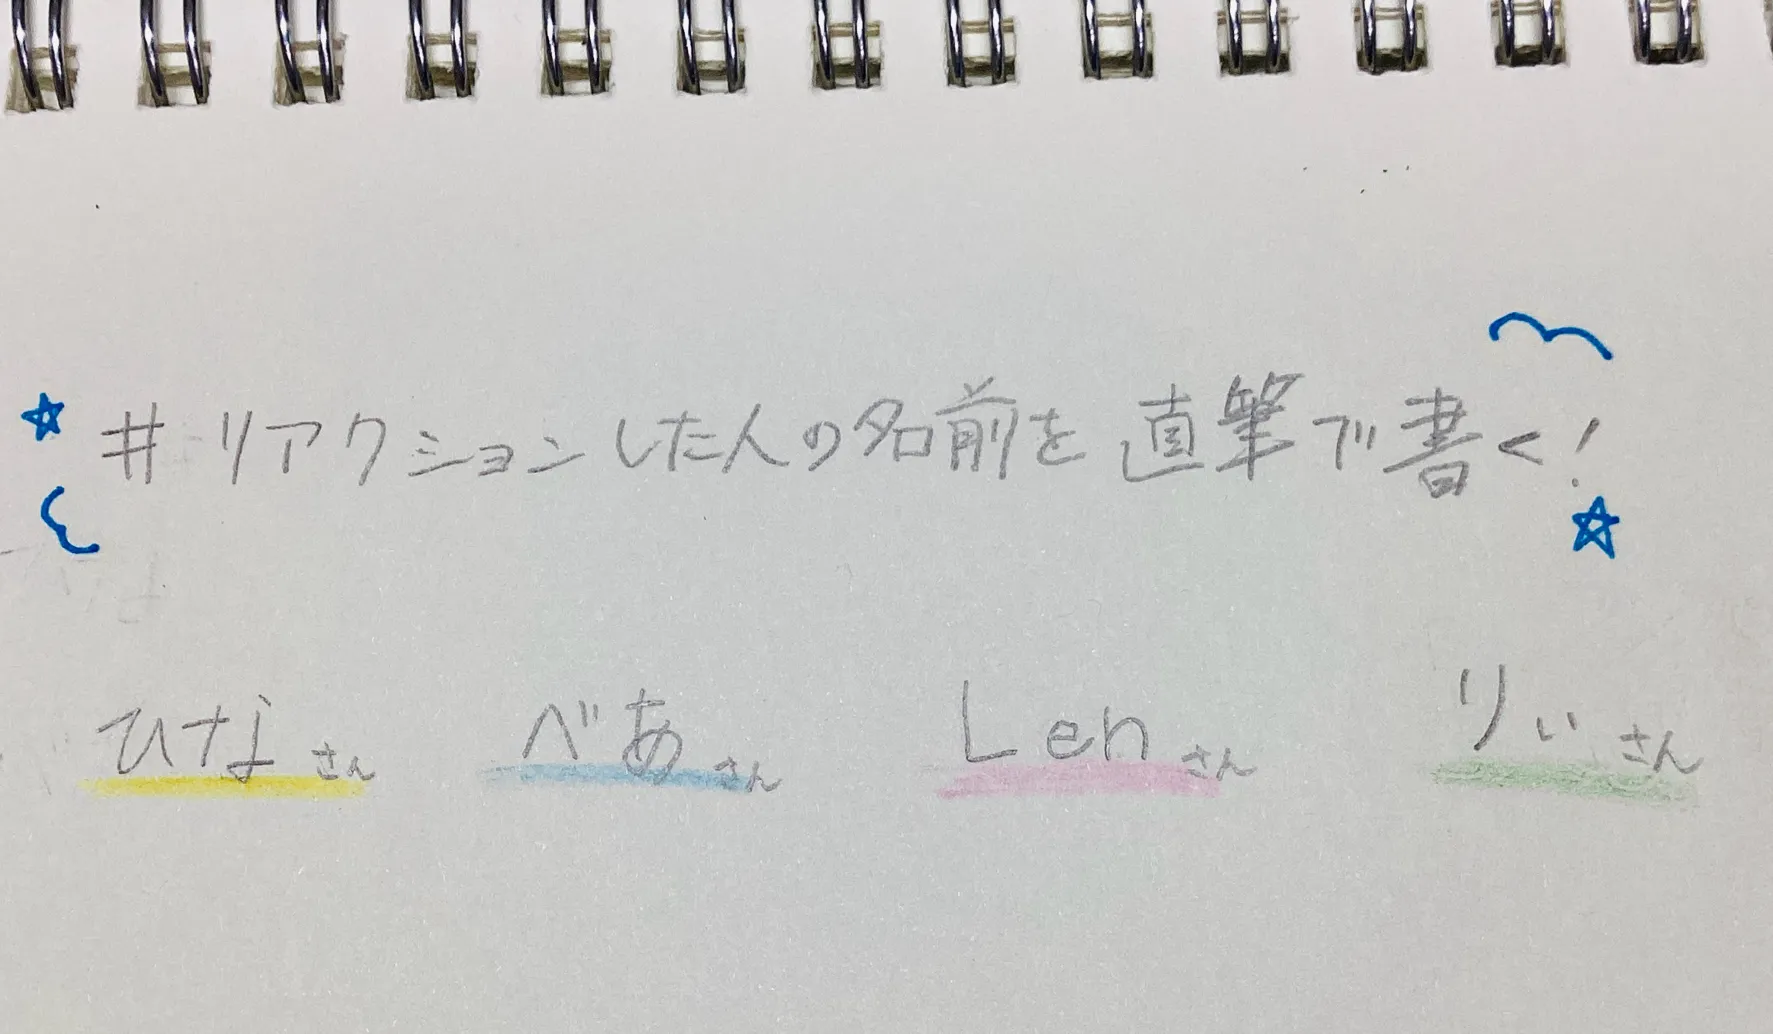 #リアクションした人の名前を直筆で書く!
ひなさん べあさん Lenさん りぃさん